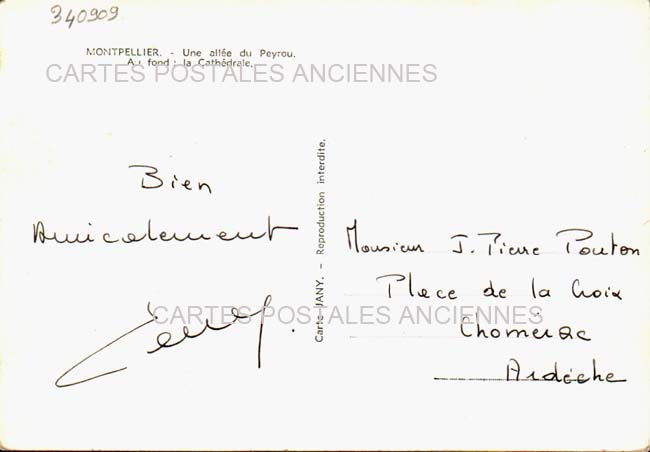 340909
MONTPELLIER. - Une allée du Peyrou.
Au fond : la Cathédrale.
CARTES POSTALES ANCIENNES
Bien
Amicalement
Carte JANY. - Reproduction interdite.
Monsieur J. Pierre Ponton
Place de la Croix
CARTES POSTALES ANCIENNES
Chomérac
Ardèche